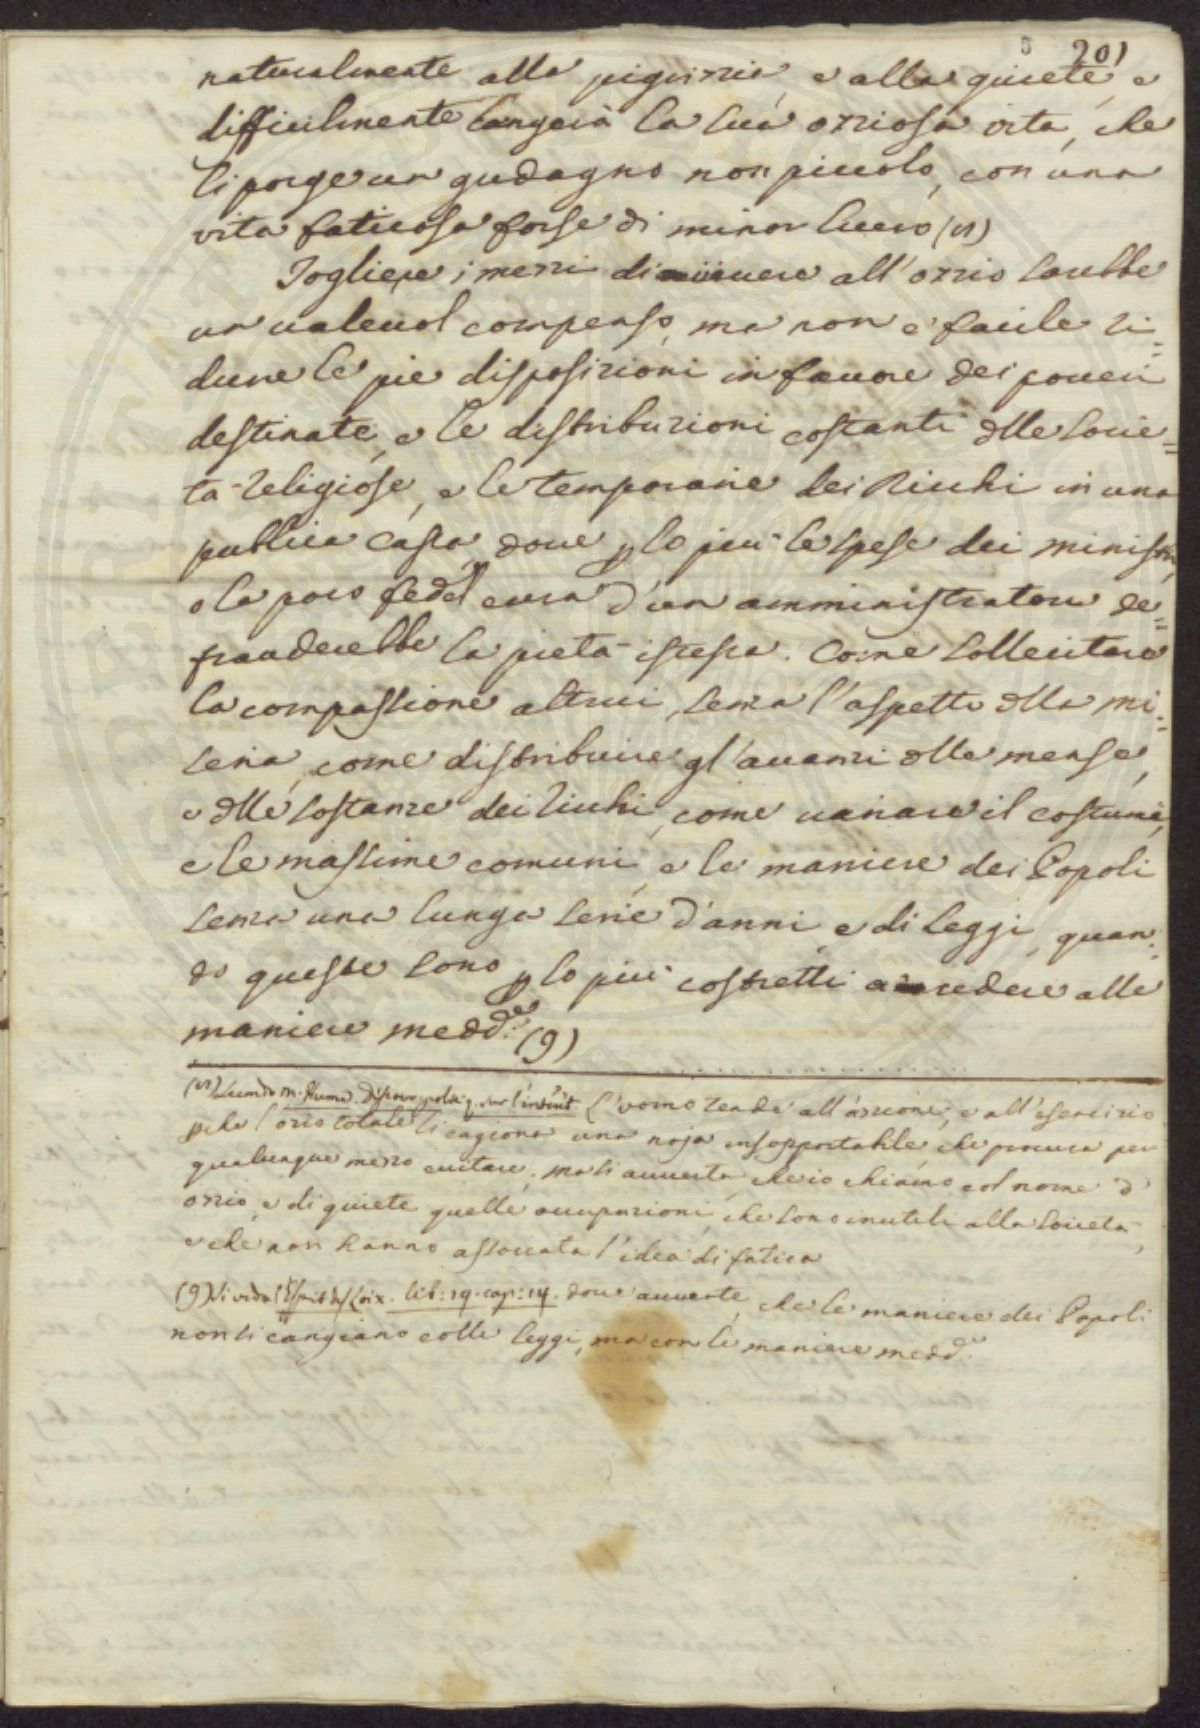 5 201
naturalmente alla pigrizia, e alla quiete, e
difficilmente cangerà la sua oziosa vita, che
li porge un guadagno non piccolo, con una
vita faticosa forse di minor lucro (8)
Togliere i mezzi di vivere all'ozzio sarebbe
un valevol compenso, ma non è facile ri=
durre le pie disposizioni in favore dei poveri
destinate, e le distribuzioni costanti delle socie=
tà religiose, e le temporarie dei Ricchi in una
publica cassa, dove p lo più le spese dei ministri,
o la poco fedel cura d'un amministratore de=
frauderebbe la pietà istessa. Come sollecitare
la compassione altrui, senza l'aspetto della mi=
seria, come distribuire gl'avanzi delle mense,
e delle sostanze dei ricchi, come variare il costume,
e le massime comuni, e le maniere dei Popoli
senza una lunga serie d'anni, e di leggi, quan=
do queste sono p lo più costretti a cedere alle
maniere medd.e (9)
(8) Secondo M. Hume. Discour polit: l'uomo tende all'azzione, e all'esercizio
pche l'ozio totale li cagiona una noja insopportabile che procura per
qualunque mezzo evitare; ma si avverta, che io chiamo col nome d'
ozzio, e di quiete quelle occupazioni, che sono inutili alla società,
e che non hanno associata l'idea di fatica
(9) Si veda l'Esprit des Loix. lib: 19. cap: 14. dove avverte, che le maniere dei Popoli
non si cangiano colle leggi, ma con le maniere medd.e